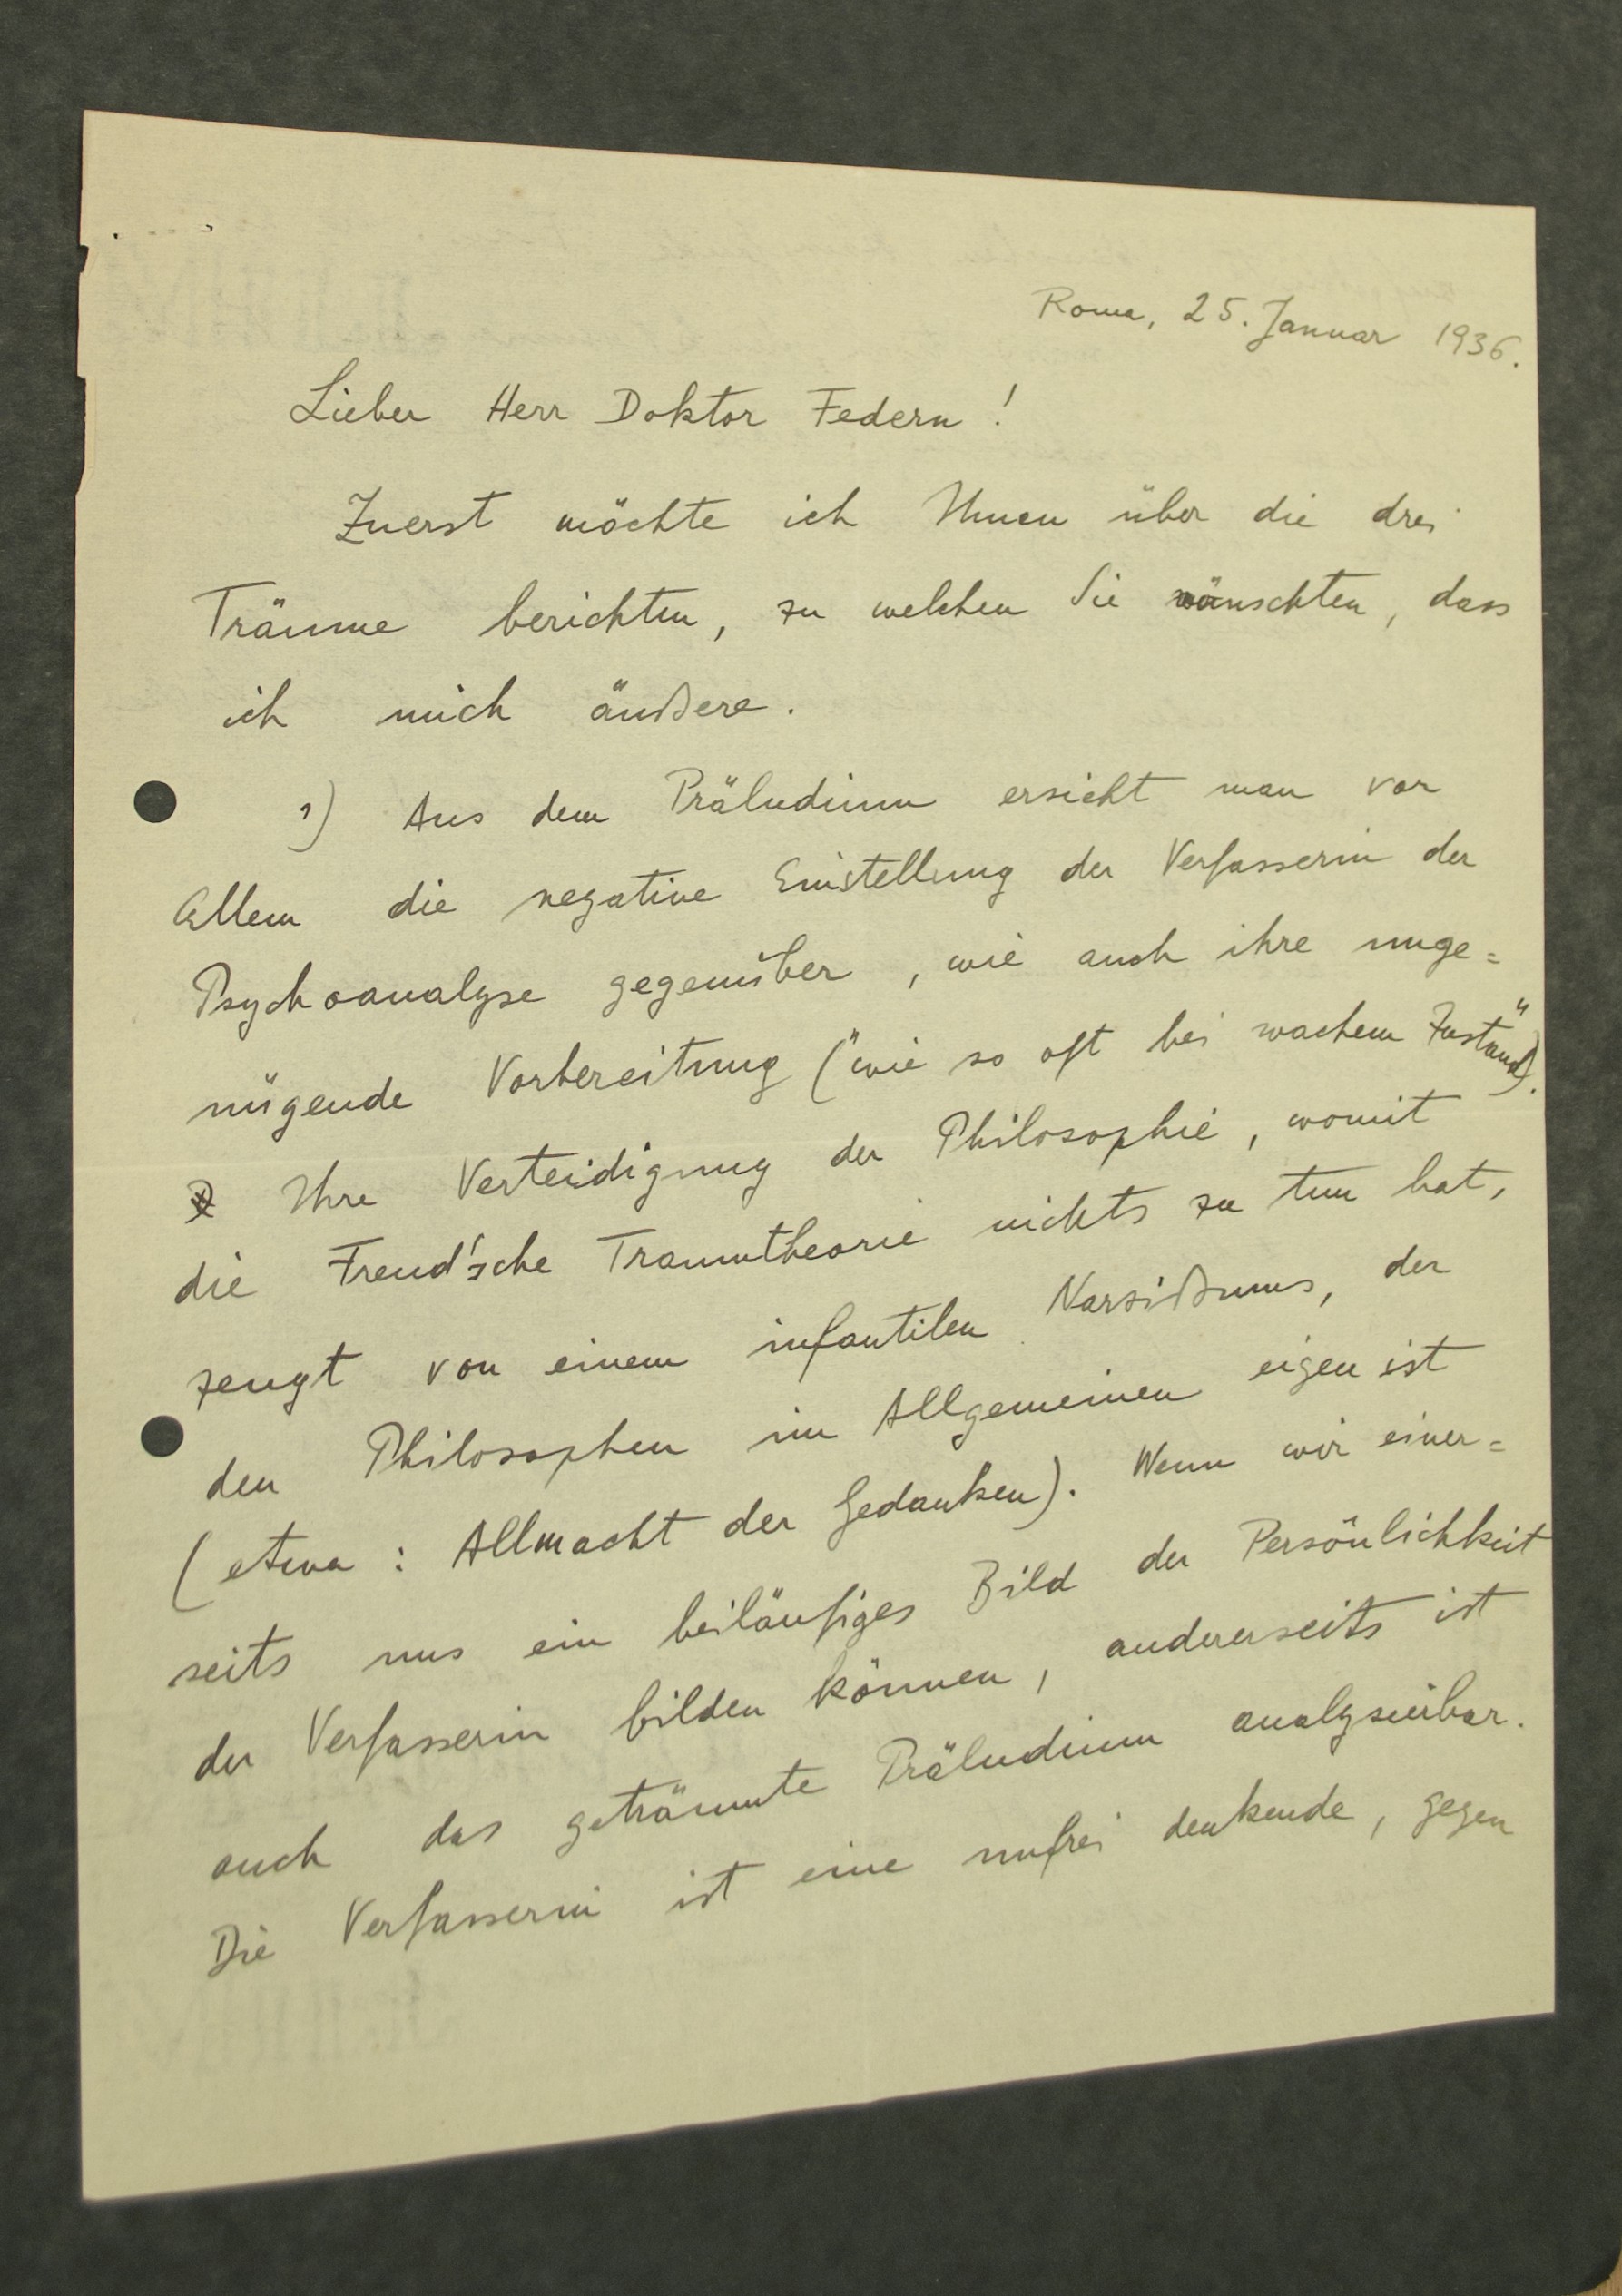 Roma, 25. Januar 1936.
Lieber Herr Doktor Federn !
Zuerst möchte ich Ihnen über die drei
Träume berichten, zu welchen Sie wünschten, dass
ich mich äußere.
1) Aus dem Präludium ersieht man vor
Allem die negative Einstellung der Verfasserin der
Psychoanalyse gegenüber, wie auch ihre unge=
nügende Vorbereitung ("wie so oft bei wachem Zustand").
Ihre Verteidigung der Philosophie, womit
die Freud'sche Traumtheorie nichts zu tun hat,
zeugt von einem infantilen Narzißmus, der
den Philosophen im Allgemeinen eigen ist
(etwa : Allmacht der Gedanken). Wenn wir einer=
seits uns ein beiläufiges Bild der Persönlichkeit
der Verfasserin bilden können, andererseits ist
auch das geträumte Präludium analysierbar.
Die Verfasserin ist eine unfrei denkende, gegen